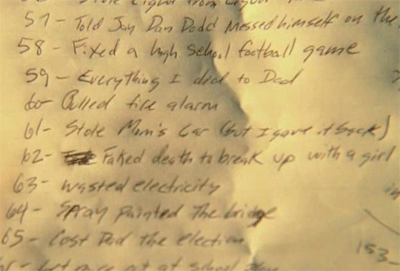 57- Told Jon Dan Dodd Messed himself on the
58- Fixed a high school football game
59- Everything I did to Dad
60- Pulled fire alarm
61- Stole Mom's Car (but I gave it back)
62- Faked death to break up with a girl
63- wasted electricity
64- Spray painted the bridge
65- Cost Dad the election
153-